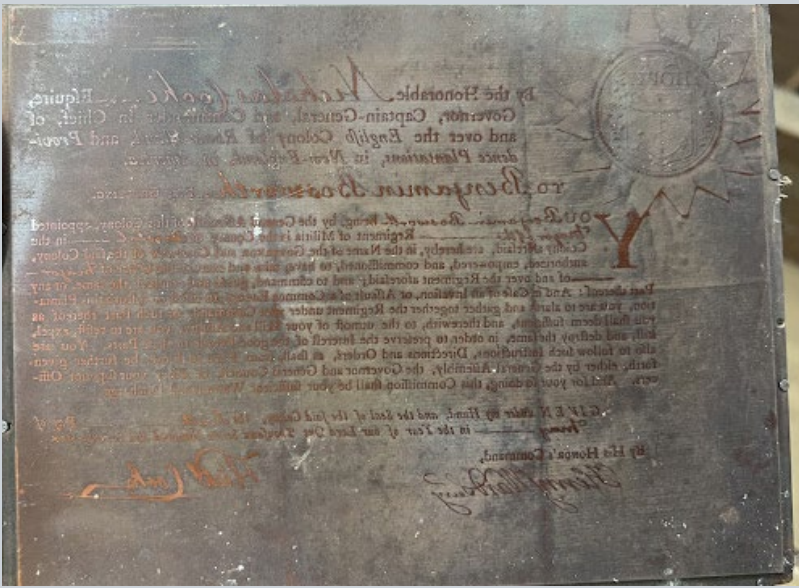 HOPE
By the Honorable Nicholas Cooke Esquire,
Governor, Captain-General, and Commander in Chief, of
and over the English Colony of Rhode Island, and Provi-
dence Plantations, in New-England, in America.
To Benjamin Bosworth
YOU Benjamin Bosworth being, by the General Assembly of this Colony, appointed
Major Regiment of Militia in the County of in the
Colony aforesaid, are hereby, in the Name of the Governor and Company of the said Colony,
authorized, empowered, and commissioned, to have, take and exercise the Office of Major
of and over the Regiment aforesaid; and to command, guide and conduct the same, or any
Part thereof: And in Case of an Invasion, or Assault of a Common Enemy, to infest or disturb this Planta-
tion, you are to alarm and gather together the Regiment under your Command, or such Part thereof as
you shall deem sufficient, and therewith, to the utmost of your Skill and Ability, you are to resist, expel,
kill, and destroy the same, in order to preserve the Interest of the good People in these Parts. You are
also to follow such Instructions, Directions and Orders, as shall, from Time to Time, be further given
forth, either by the General Assembly, the Governor and General Council, or other your superior Offi-
cers. And for your so doing, this Commission shall be your sufficient Warrant
GIVEN under my Hand, and the Seal of the said Colony, the Day of
in the Year of our Lord One Thousand Seven Hundred and
By His Honor's Command,
Nich Cooke
Henry Ward Secry